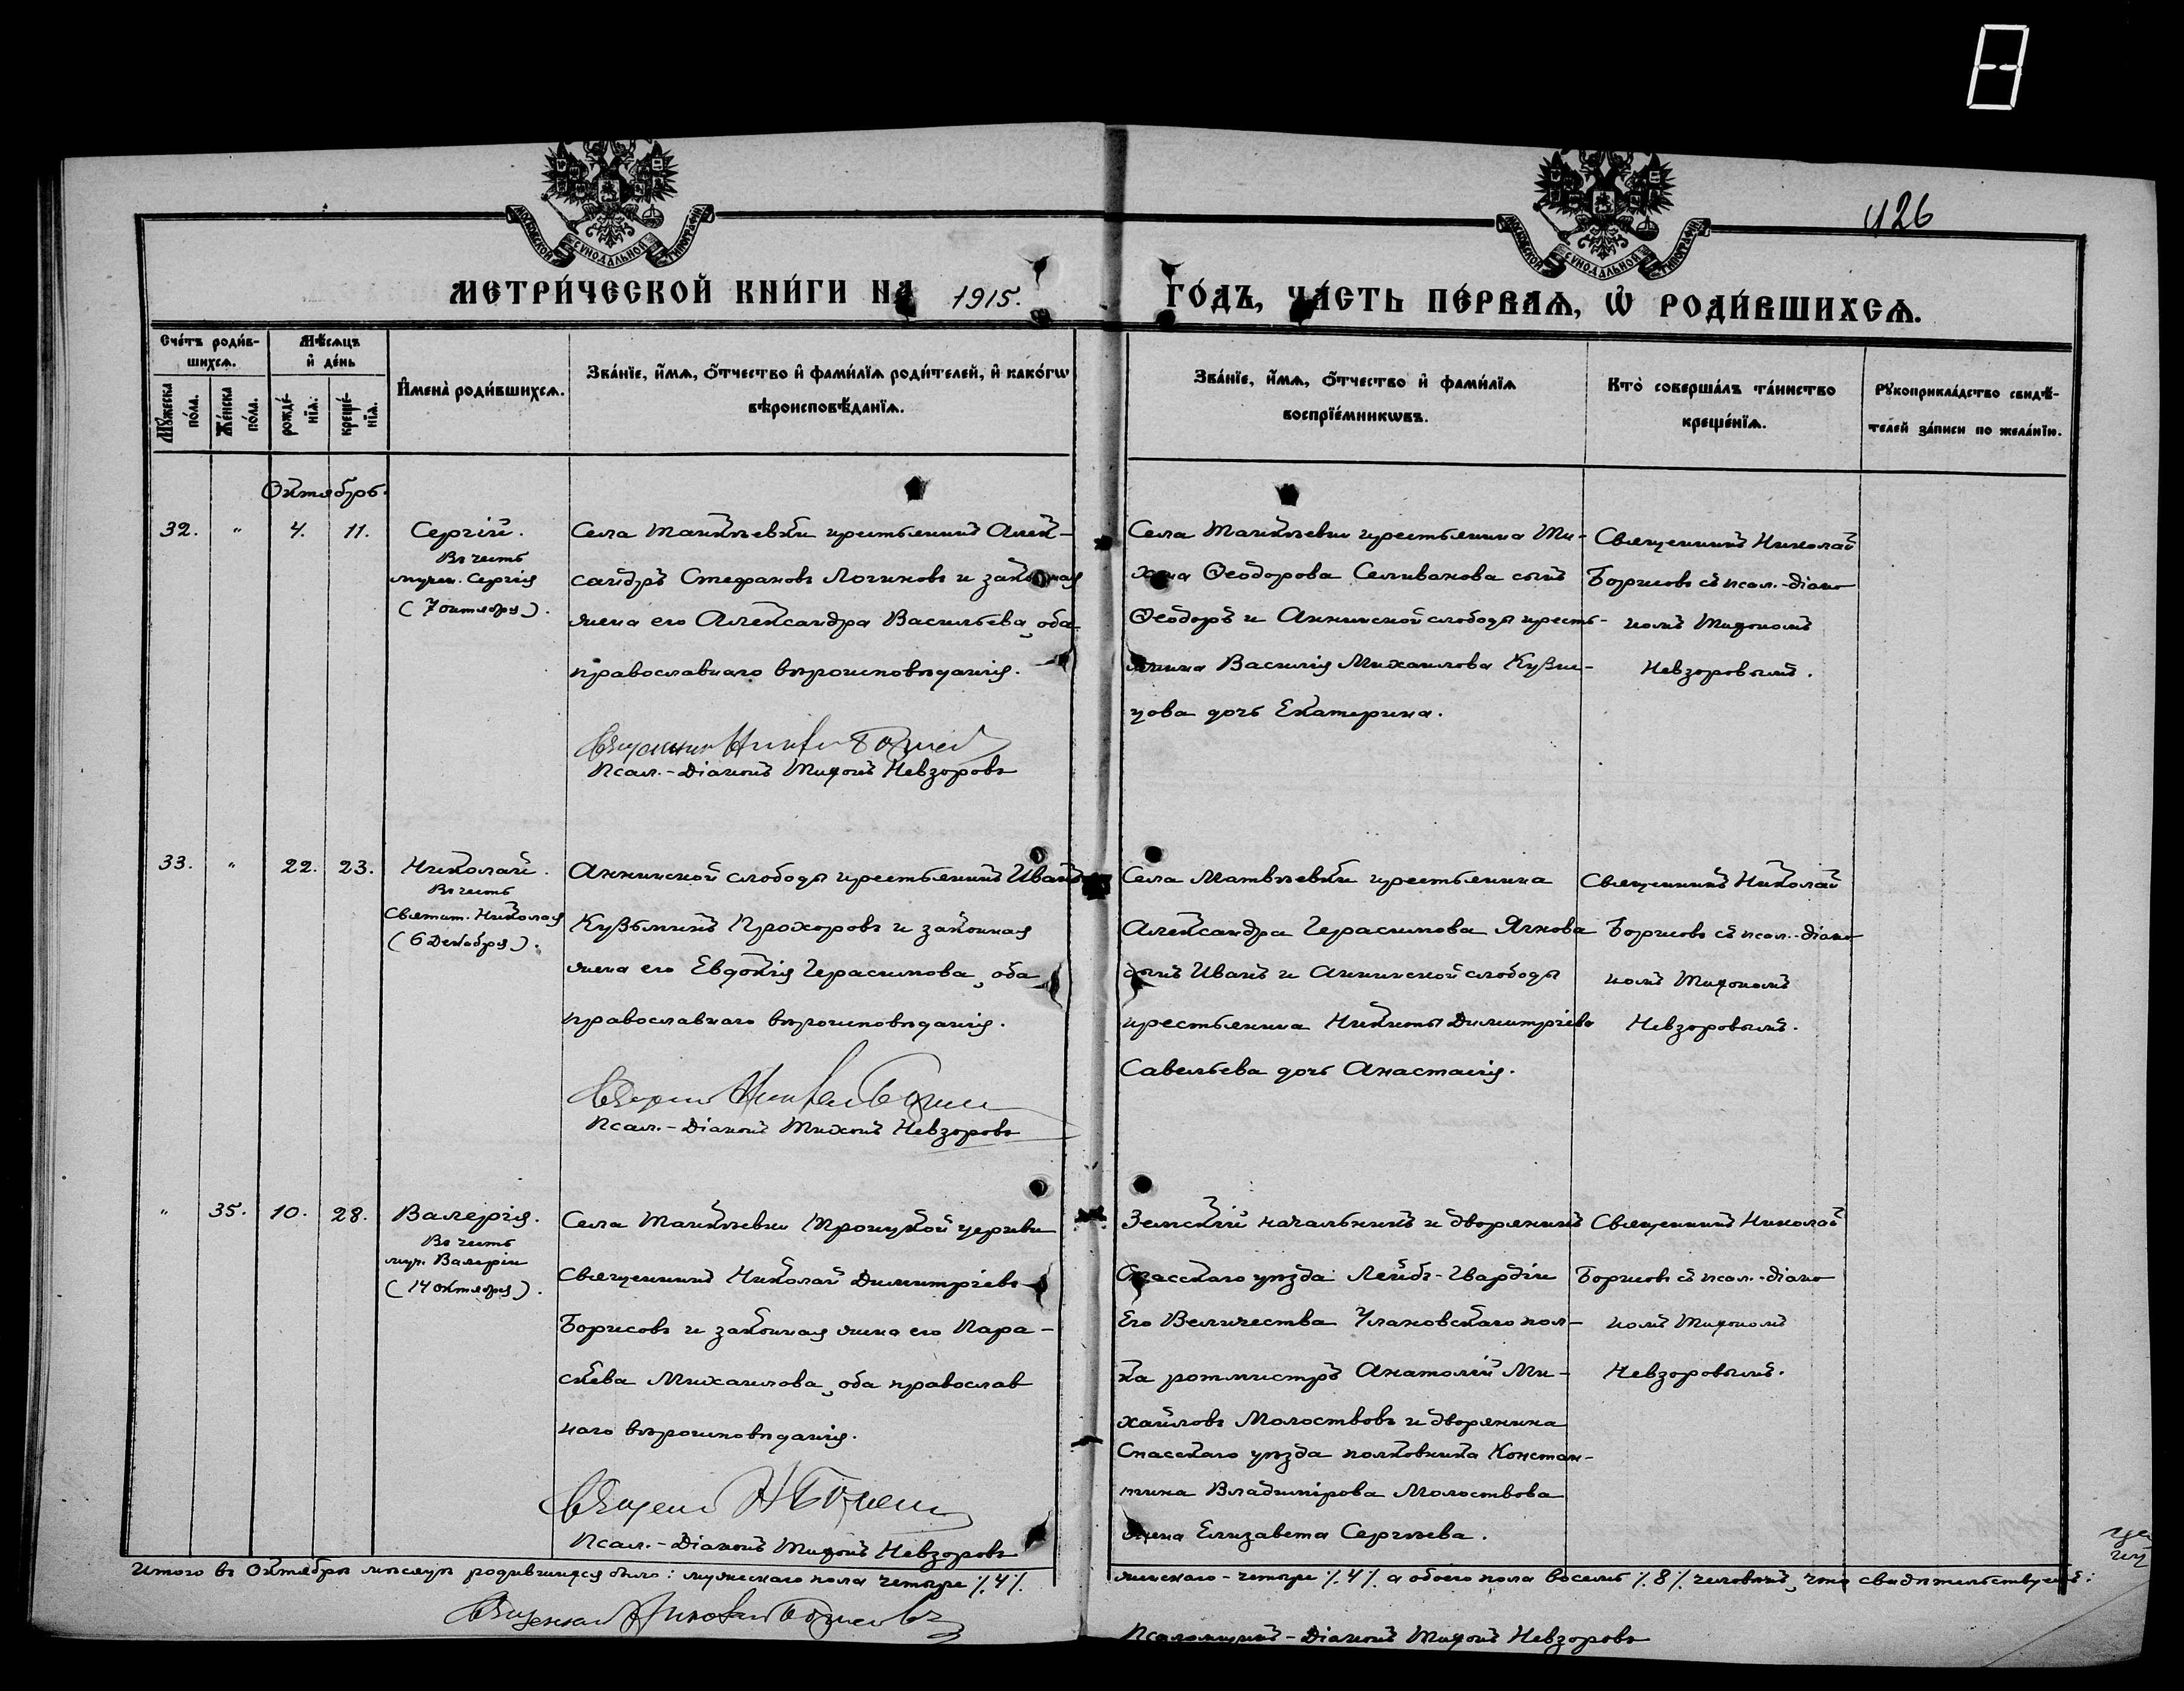 426
МОСКОВСКОЙ СѴНОДАЛЬНОЙ ТИПОГРАФІИ
МОСКОВСКОЙ СѴНОДАЛЬНОЙ ТИПОГРАФІИ
МЕТРИ́ЧЕСКОЙ КНИ́ГИ НА 1915. ГО́ДЪ, ЧА́СТЬ ПЕ́РВАѦ, Ѽ РОДИ́ВШИХСѦ.
Сче́тъ роди́в-
шихсѧ.
Мѹ́жеска по́ла.
Же́нска по́ла.
Мѣ́сѧцъ
и҆ де́нь
рожде́-
нїѧ.
креще́-
нїѧ.
И҆мена̀ роди́вшихсѧ.
Зва́нїе, и҆́мѧ, ѻ҆́тчество и҆ фами́лїѧ роди́телей, и҆ како́гѡ
вѣроисповѣ́данїѧ.
Зва́нїе, и҆́мѧ, ѻ҆́тчество и҆ фами́лїѧ
воспрїе́мникѡвъ.
Кто̀ соверша́лъ та́инство
креще́нїѧ.
Рѹкоприкла́дство свидѣ́-
телей за́писи по жела́нїю.
Октябрь.
32. " 4. 11.
Сергій.
Въ честь
мучен. Сергія
(7 октября).
Села Танкѣевки крестьянинъ Алек-
сандръ Стефановъ Логиновъ и законная
жена его Александра Васильева, оба
православнаго вѣроисповѣданія.
Священникъ Николай Борисовъ
Псал.-Діаконъ Тихонъ Невзоровъ
Села Танкѣевки крестьянина Ти-
хона Ѳеодорова Селиванова сынъ
Ѳеодоръ и Аннинской слободы кресть-
янина Василія Михаилова Кузне-
цова дочь Екатерина.
Священникъ Николай
Борисовъ съ псал.-діако-
номъ Тихономъ
Невзоровымъ.
33. " 22. 23.
Николай.
Въ честь
Святит. Николая
(6 Декабря).
Аннинской слободы крестьянинъ Иванъ
Кузьминъ Прохоровъ и законная
жена его Евдокія Герасимова, оба
православнаго вѣроисповѣданія.
Священникъ Николай Борисовъ
Псал.-Діаконъ Тихонъ Невзоровъ
Села Матвѣевки крестьянина
Александра Герасимова Ягнова
сынъ Иванъ и Аннинской слободы
крестьянина Никиты Димитріева
Савельева дочь Анастасія.
Священникъ Николай
Борисовъ съ псал.-діако-
номъ Тихономъ
Невзоровымъ.
" 35. 10. 28.
Валерія.
Въ честь
муч. Валеріи
(14 октября).
Села Танкѣевки Троицкой церкви
Священникъ Николай Димитріевъ
Борисовъ и законная жена его Пара-
скева Михаилова, оба православ
наго вѣроисповѣданія.
Священникъ Н Борисовъ
Псал.-Діаконъ Тихонъ Невзоровъ
Земскій начальникъ и дворянинъ
Спасскаго уѣзда Лейбъ-Гвардіи
Его Величества Улановскаго пол-
ка ротмистръ Анатолій Ми-
хайловъ Молоствовъ и дворянина
Спасскаго уѣзда полковника Констан-
тина Владимірова Молоствова
жена Елизавета Сергѣева.
Священникъ Николай
Борисовъ съ псал.-діако-
номъ Тихономъ
Невзоровымъ.
Итого въ Октябрѣ мѣсяцѣ родившихся было: мужескаго пола четыре ٪ 4 ٪ женскаго - четыре ٪ 4 ٪ а обоего пола восемь ٪ 8 ٪ человѣкъ, что свидѣтельствуемъ:
Священникъ Николай Борисовъ
Псаломщикъ-Діаконъ Тихонъ Невзоровъ